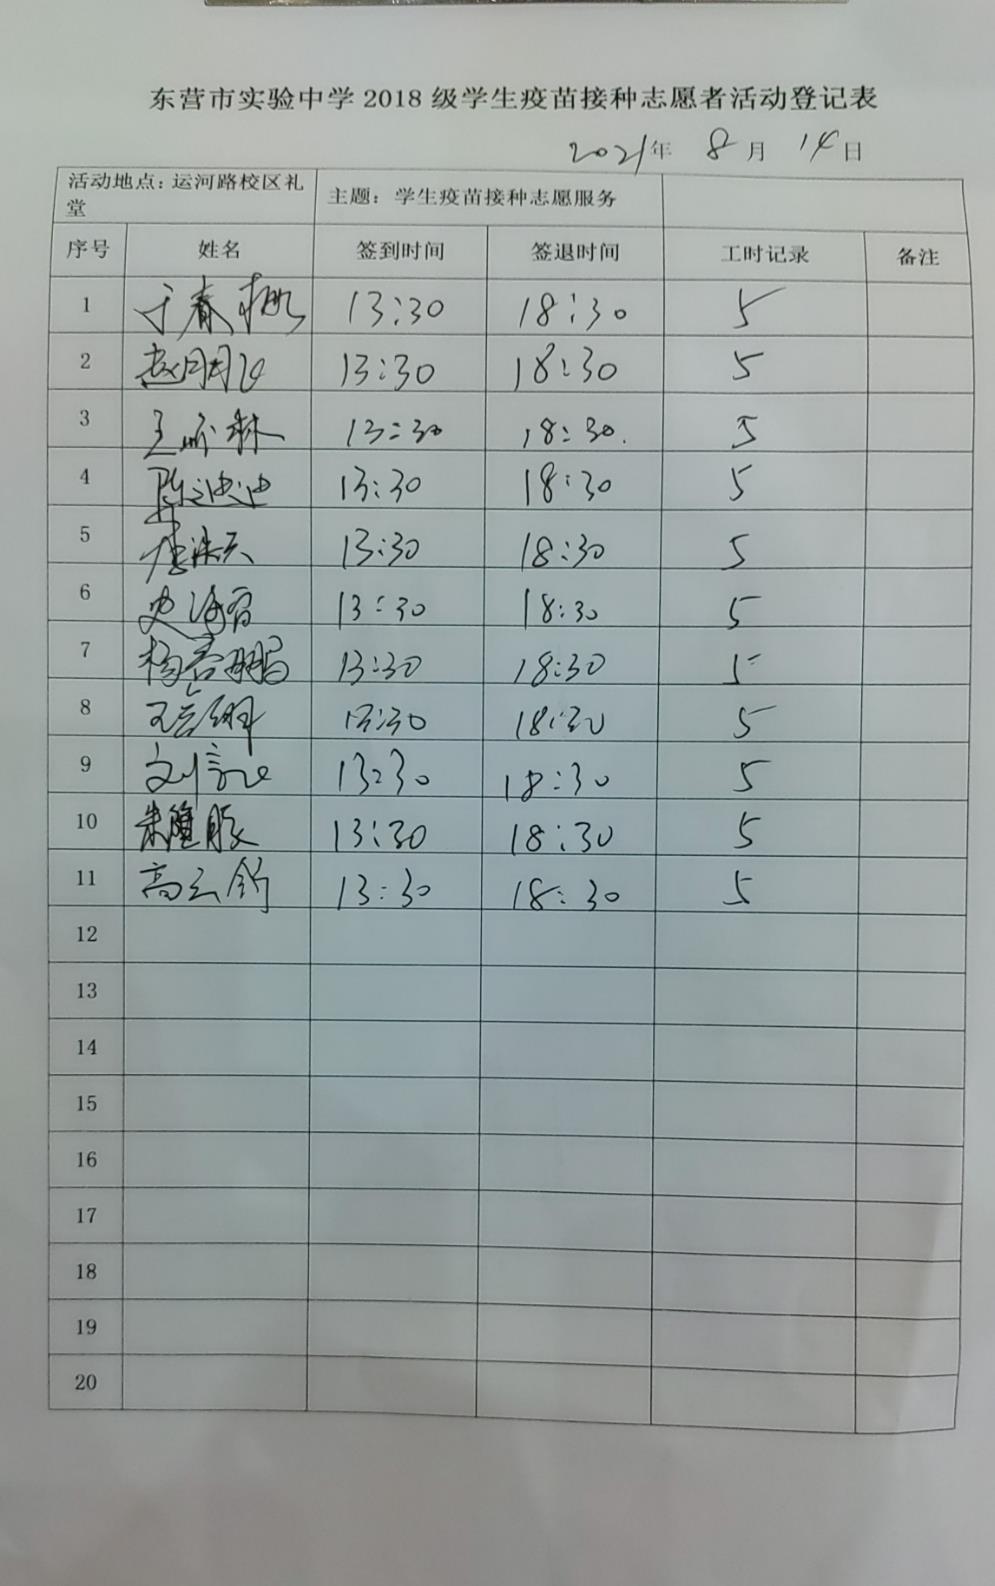 东营市实验中学2018级学生疫苗接种志愿者活动登记表
2021年 8月 14日
活动地点：运河路校区礼堂 主题：学生疫苗接种志愿服务
序号 姓名 签到时间 签退时间 工时记录 备注
1 于春桃 13:30 18:30 5
2 13:30 18:30 5
3 13:30 18:30. 5
4 陈迪迪 13:30 18:30 5
5 13:30 18:30 5
6 13:30 18:30 5
7 13:30 18:30 5
8 13:30 18:30 5
9 13:30 18:30 5
10 13:30 18:30 5
11 高云舒 13:30 18:30 5
12
13
14
15
16
17
18
19
20